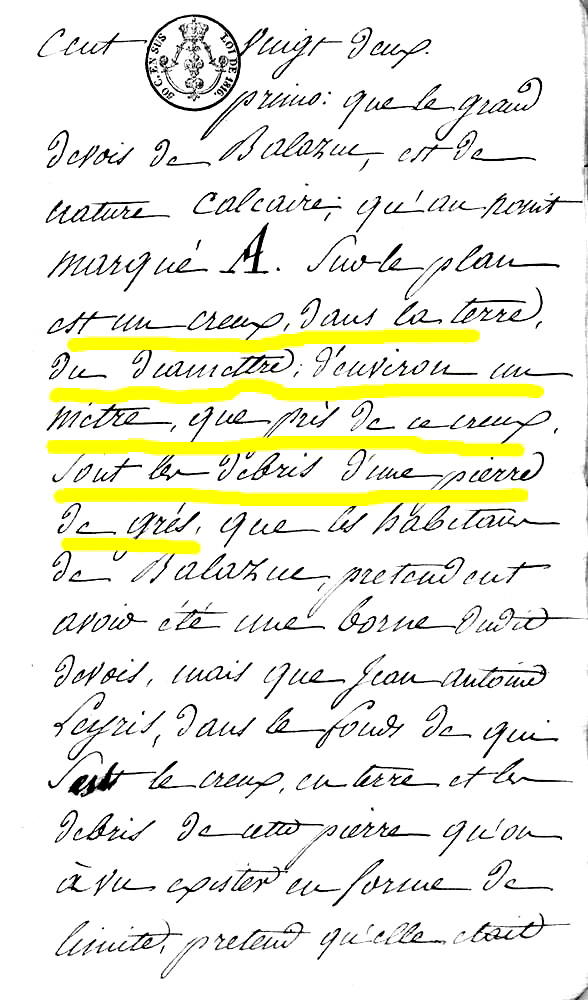 Cent vingt deux.
30 C. EN SUS LOI DE 1816.
primo: que le grand
devois de Balazuc, est de
nature calcaire; qu'au point
marqué A. Sur le plan
est un creux, dans la terre,
du diamettre, d'environ un
mètre, que près de ce creux,
sont les debris d'une pierre
de grés, que les habitans
de Balazuc, pretendent
avoir été une borne dudit
devois, mais que Jean antoine
Leyris, dans le fonds de qui
s'est le creux, en terre et les
debris de cette pierre qu'on
à vu exister en forme de
limite, pretend qu'elle etait